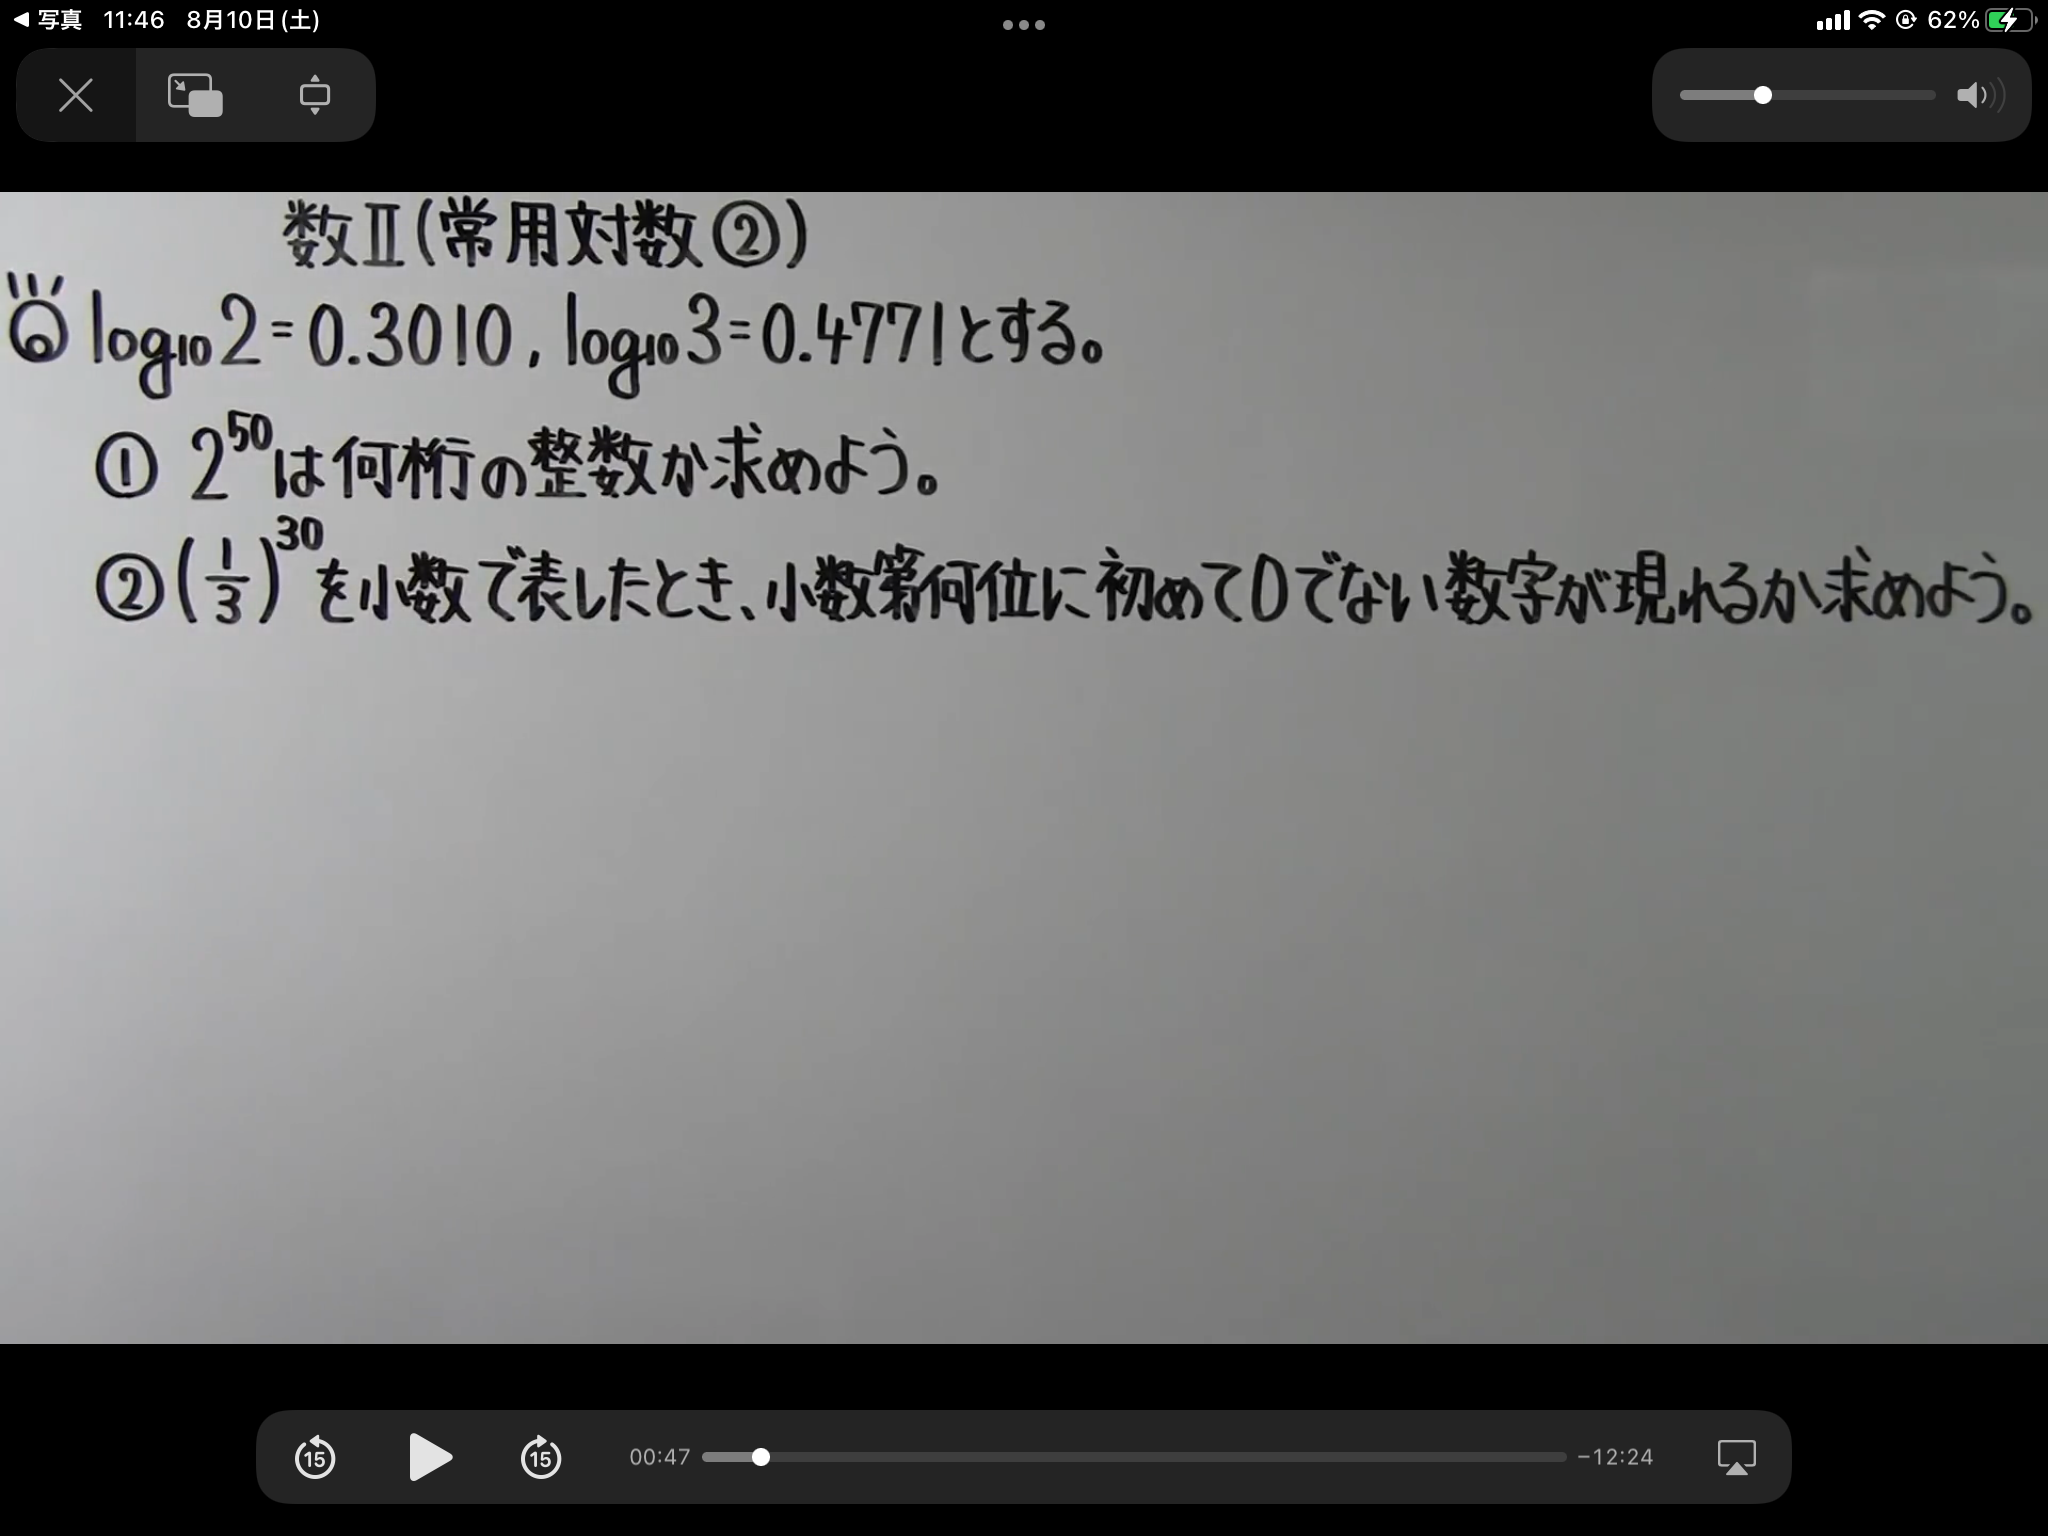 写真 11:46 8月10日(土) 62%
数Ⅱ(常用対数②)
log₁₀2=0.3010, log₁₀3=0.4771とする。
① 2⁵⁰は何桁の整数か求めよう。
②(1/3)³⁰を小数で表したとき、小数第何位に初めて0でない数字が現れるか求めよう。
15 15 00:47 −12:24